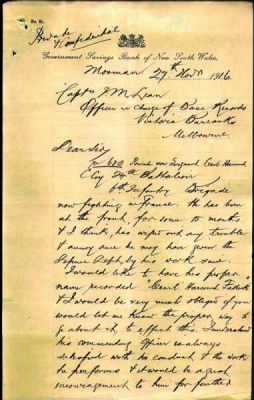 Private &
Confidential
Government Savings Bank of New South Wales,
Mosman 27th Novr 1916
Captn J M Lean
Officer in charge of Base Records
Victoria Barracks
Melbourne
Dear Sir
Private now Sergeant
Coy 24th Battalion
6th Infantry Brigade
now fighting in France. He has been
at the front, for some 10 months
& I think, has wiped out any trouble
& annoyance he may have given the
Defence Dept, by his work since.
I would like to have his proper
name recorded "Harcourt
& I would be very much obliged if you
would let me know the proper way to
go about it, to effect this. I understand
his commanding Officer is always
satisfied with his conduct & the work
he performs & it would be a great
encouragement to him for further